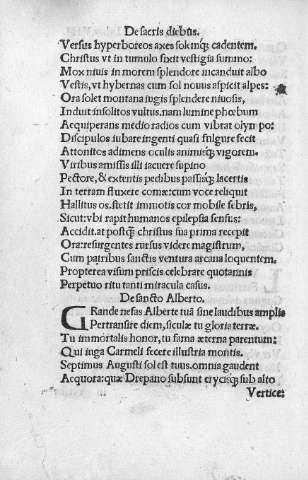 De sacris diebus.
Versus hyperboreos axes solinq; cadentem.
Christus vt in tumulo fixit vestigia summo:
Mox niuis in morem splendore incanduit albo
Vestis, vt hybernas cum sol nouus aspicit alpes:
Ora solet montana iugis splendere niuosis,
Induit insolitos vultus. nam lumine phœbum
Aequiperans medio radios cum vibrat olympo:
Discipulos iubare ingenti quasi fulgure fecit
Attonitos adimens oculis animisq; vigorem.
Viribus amissis illi iacuere supino
Pectore, & extentis pedibus passisq; lacertis
In terram fluxere comæ: cum voce reliquit
Hallitus os. stetit immotis cor mobile febris,
Sicut: vbi rapit humanos epilepsia sensus:
Accidit. at postq̃ christus sua prima recepit
Ora: resurgentes rursus videre magistrum,
Cum patribus sanctis ventura arcana loquentem.
Propterea visum priscis celebrare quotannis
Perpetuo ritu tanti miracula casus.
De sancto Alberto.
GRande nefas Alberte tuā sine laudibus amplis
Pertransire diem, siculæ tu gloria terræ.
Tu immortalis honor, tu fama æterna parentum:
Qui iuga Carmeli fecere illustria montis.
Septimus Augusti sol est tuus. omnis gaudent
Aequora: quæ Drepano subsunt erycisq; sub alto
Vertice: